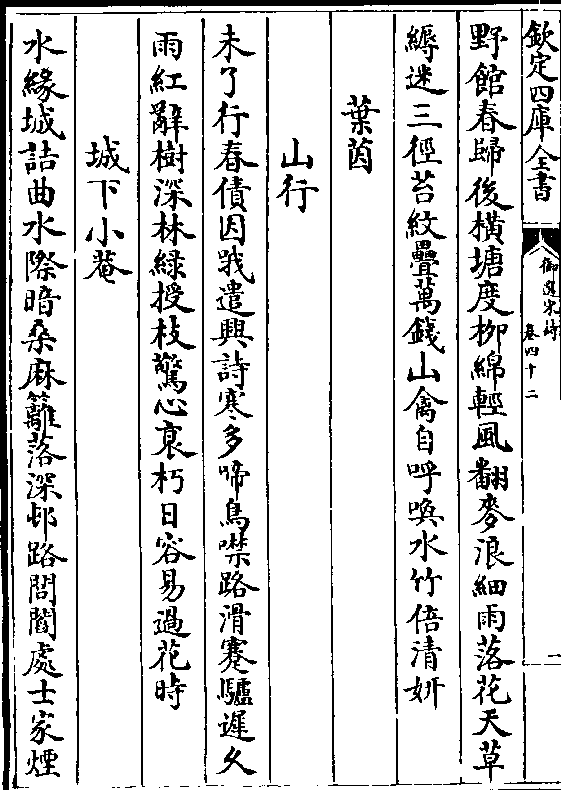 欽定四庫全書
御選宋詩
卷四十二
一
野館春歸後横塘度栁綿輕風翻麥浪細雨落花天草
縟迷三徑苔紋疊萬錢山禽自呼喚水竹倍清妍
葉茵
山行
未了行春債因我遣興詩寒多啼鳥噤路滑蹇驢遲久
雨紅辭樹深林緑授枝驚心衰朽日容易過花時
城下小菴
水縁城詰曲水際暗桑麻籬落深邨路閭閻處士家煙